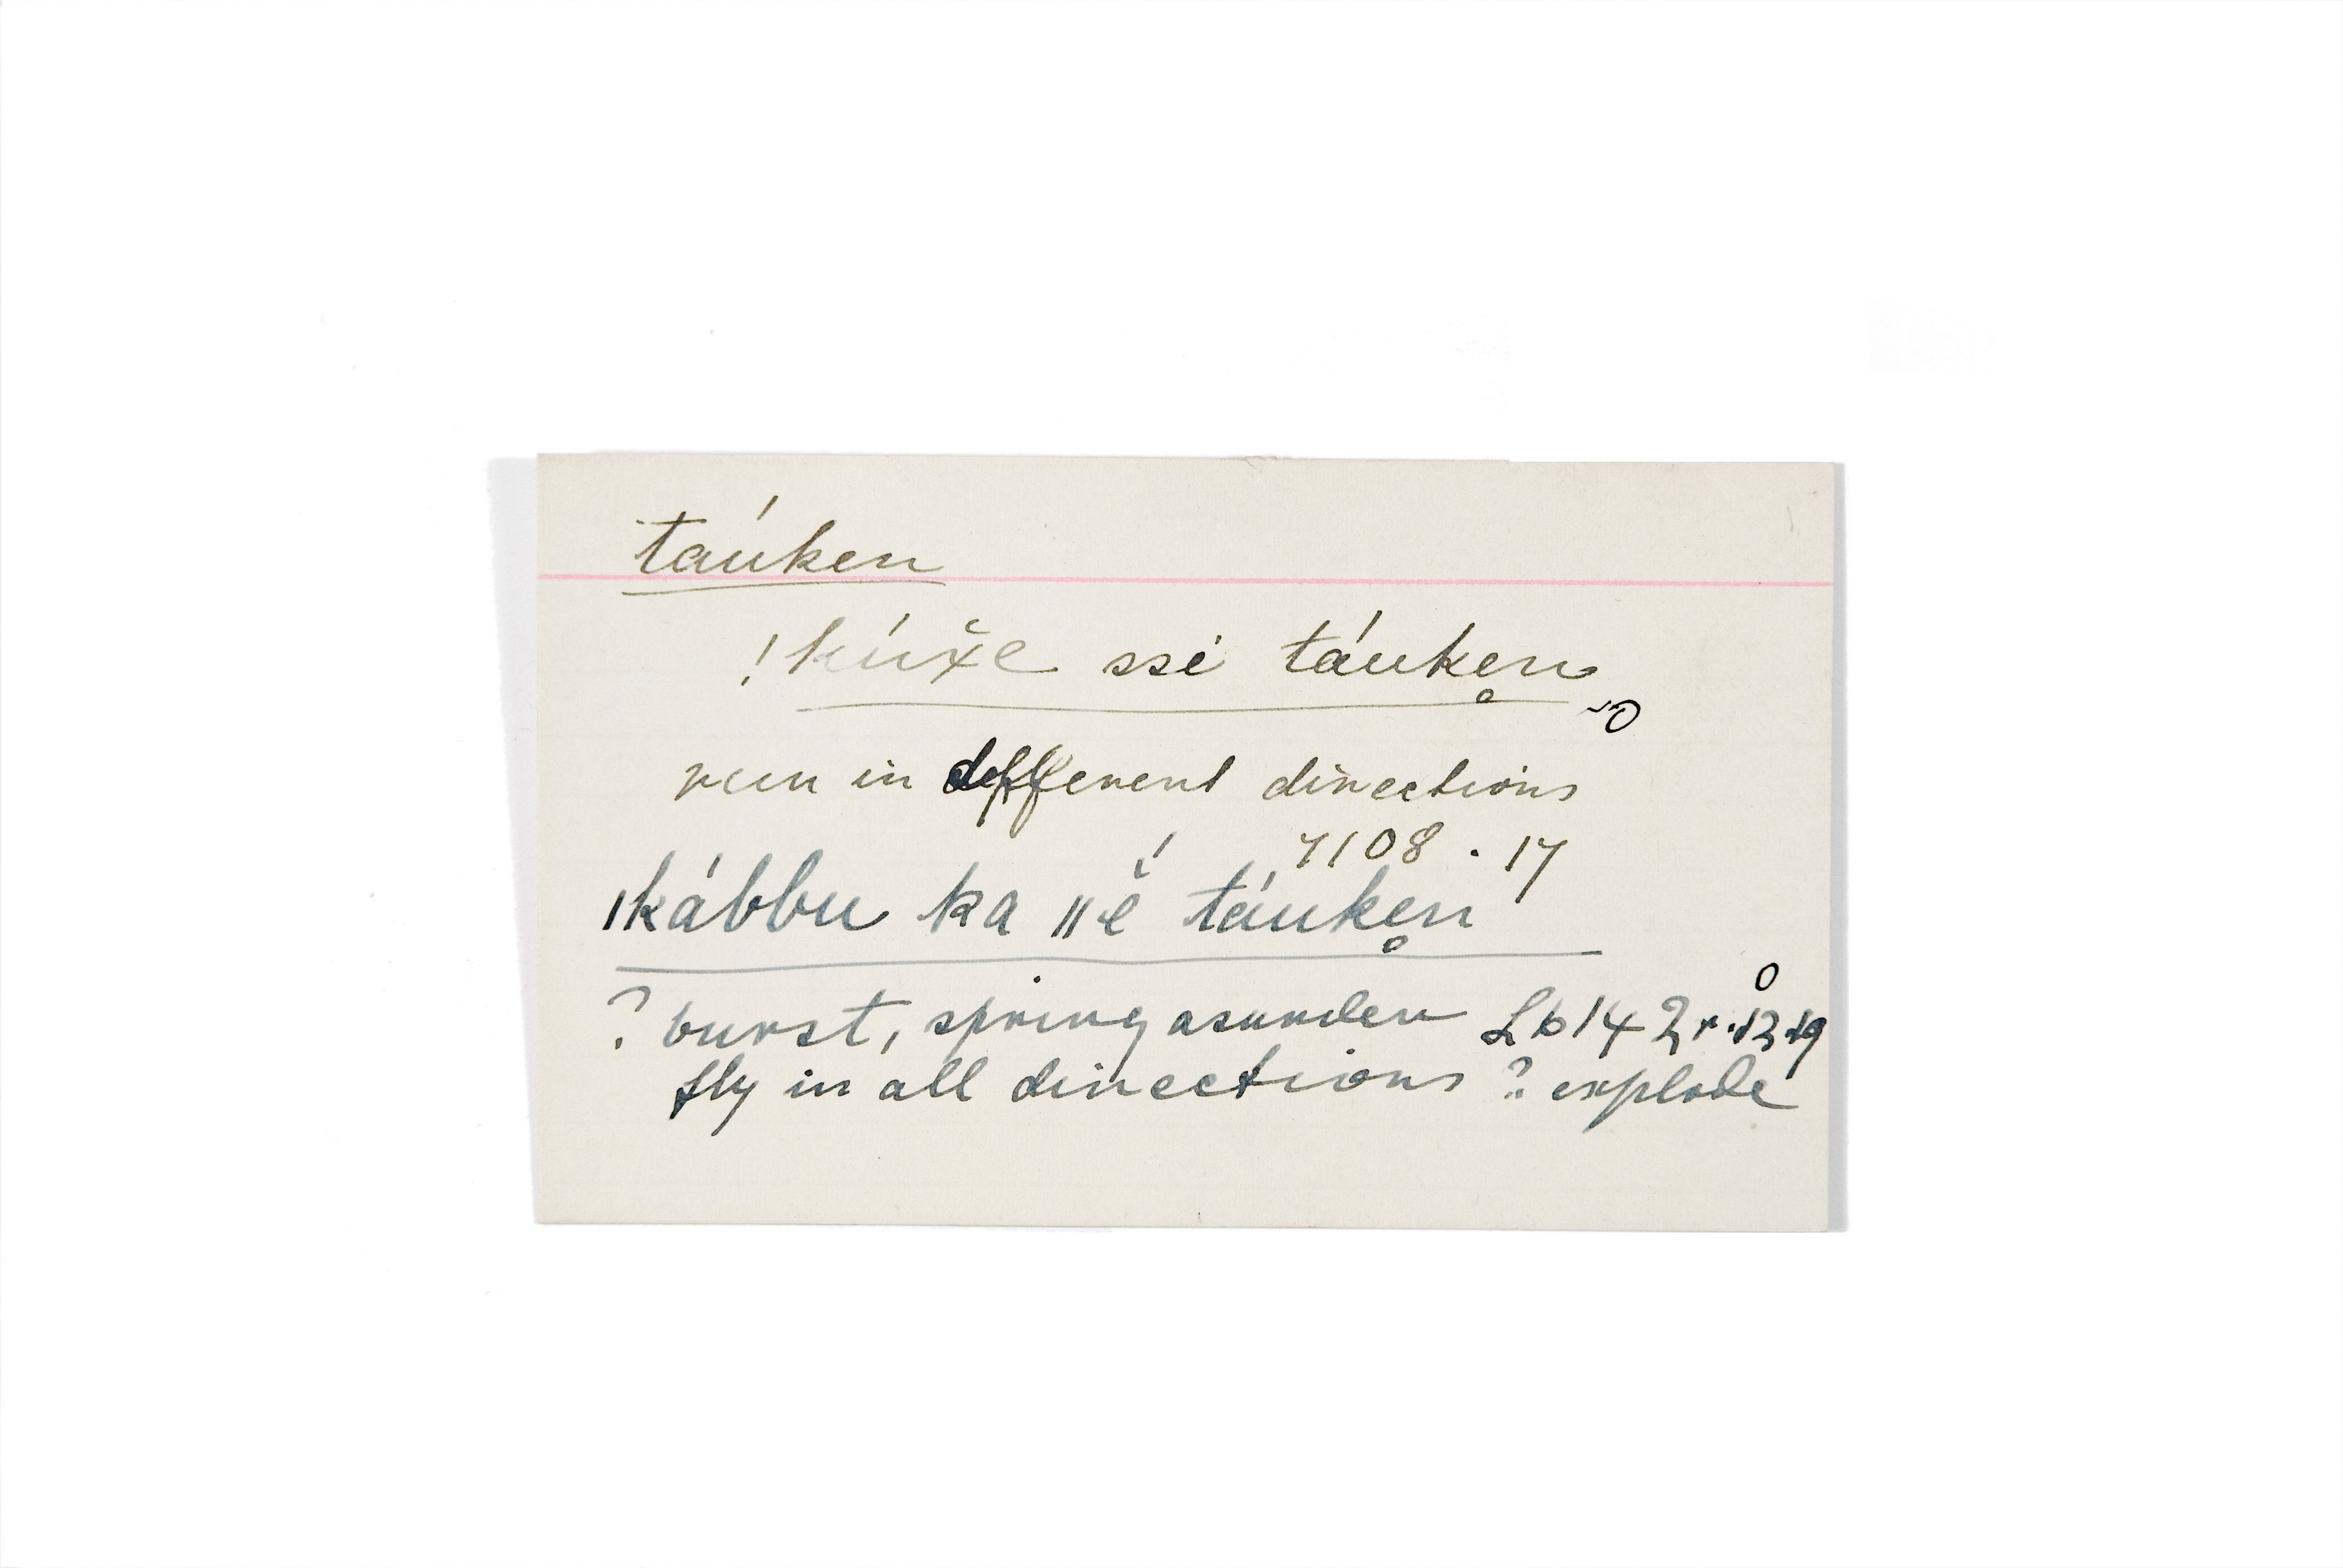 táuken
!kúx̆e ssé táuken̥
run in different directions
7108 . 17
ǀkábbu ka ǁĕ́ táuken̥
? burst, spring asunder L b 142 r.
fly in all directions ? explode